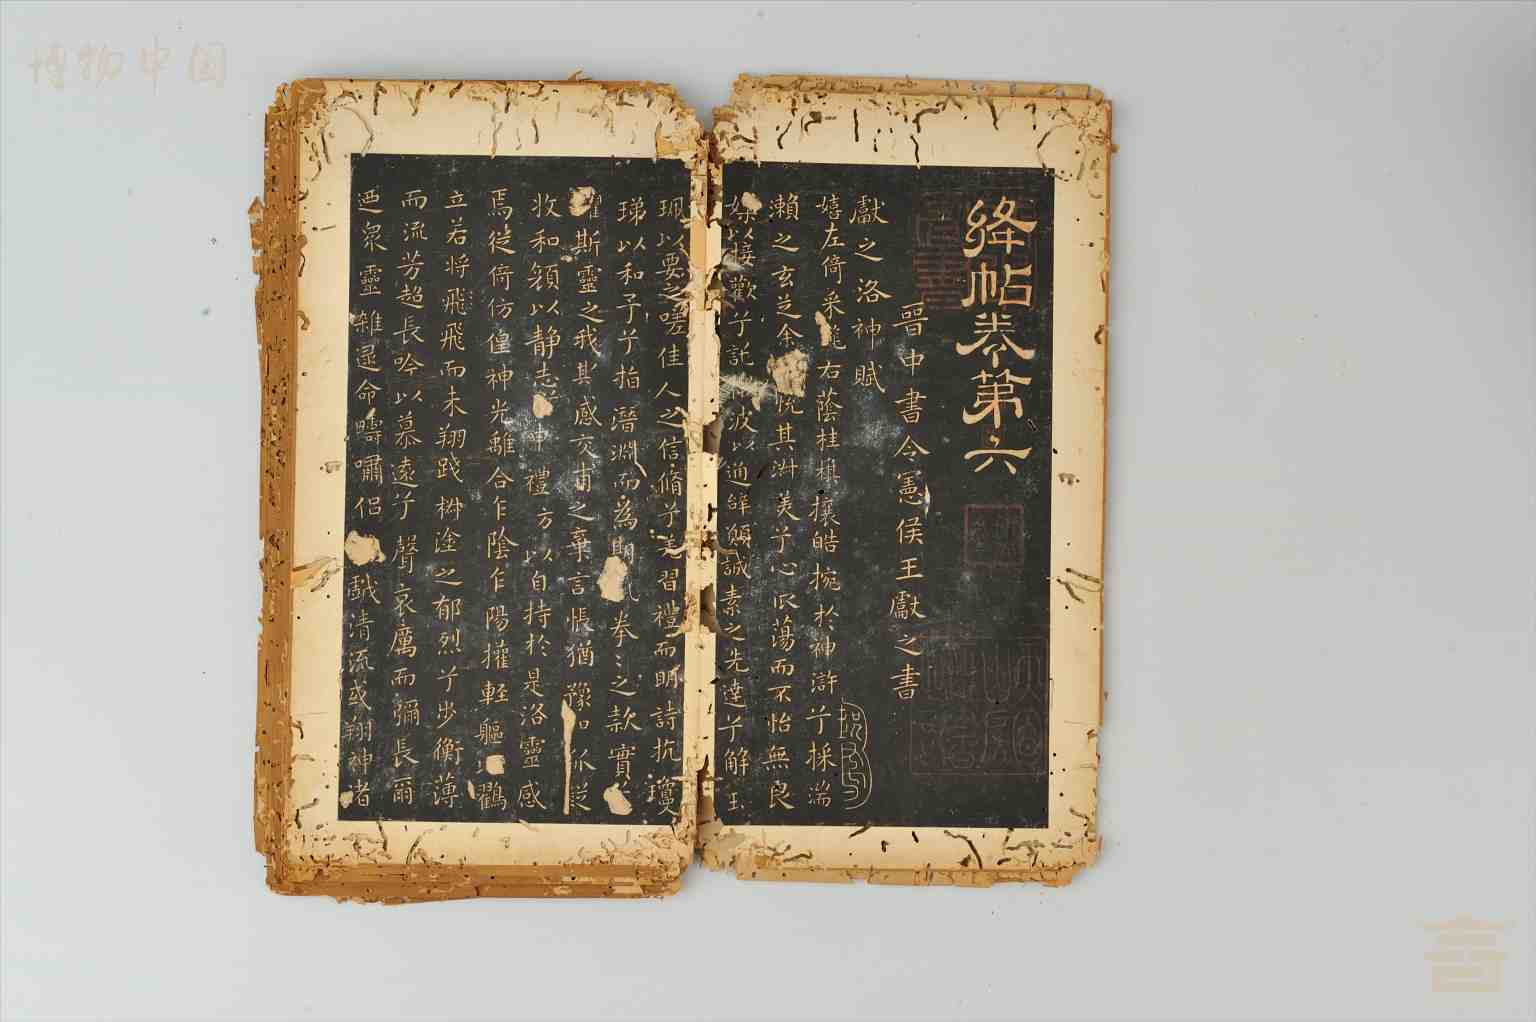 絳帖卷第六
晉中書令憲侯王獻之書
獻之洛神賦
嬉左倚采右蔭桂棋攘皓捥於神滸兮採湍
瀨之玄芝余悅其淋美兮心辰蕩而不怡無良
媒以接歡兮託波以通辞願誠素之先達兮解玉
珮以要之嗟佳人之信脩兮羌習禮而明詩抗瓊
珶以和予兮指潛淵而為期拳〻之款實
懼斯靈之我其感交甫之棄言悵猶豫
收和顏以静志禮方以自持於是洛靈感
焉徙倚仿偟神光離合乍陰乍陽擢輕軀鸖
立若將飛飛而未翔踐椒塗之郁烈兮步衡薄
而流芳超長吟以慕遠兮聲哀厲而彌長爾
迺眾靈雜遝命疇嘯侶戲清流或翔神渚
博物中国